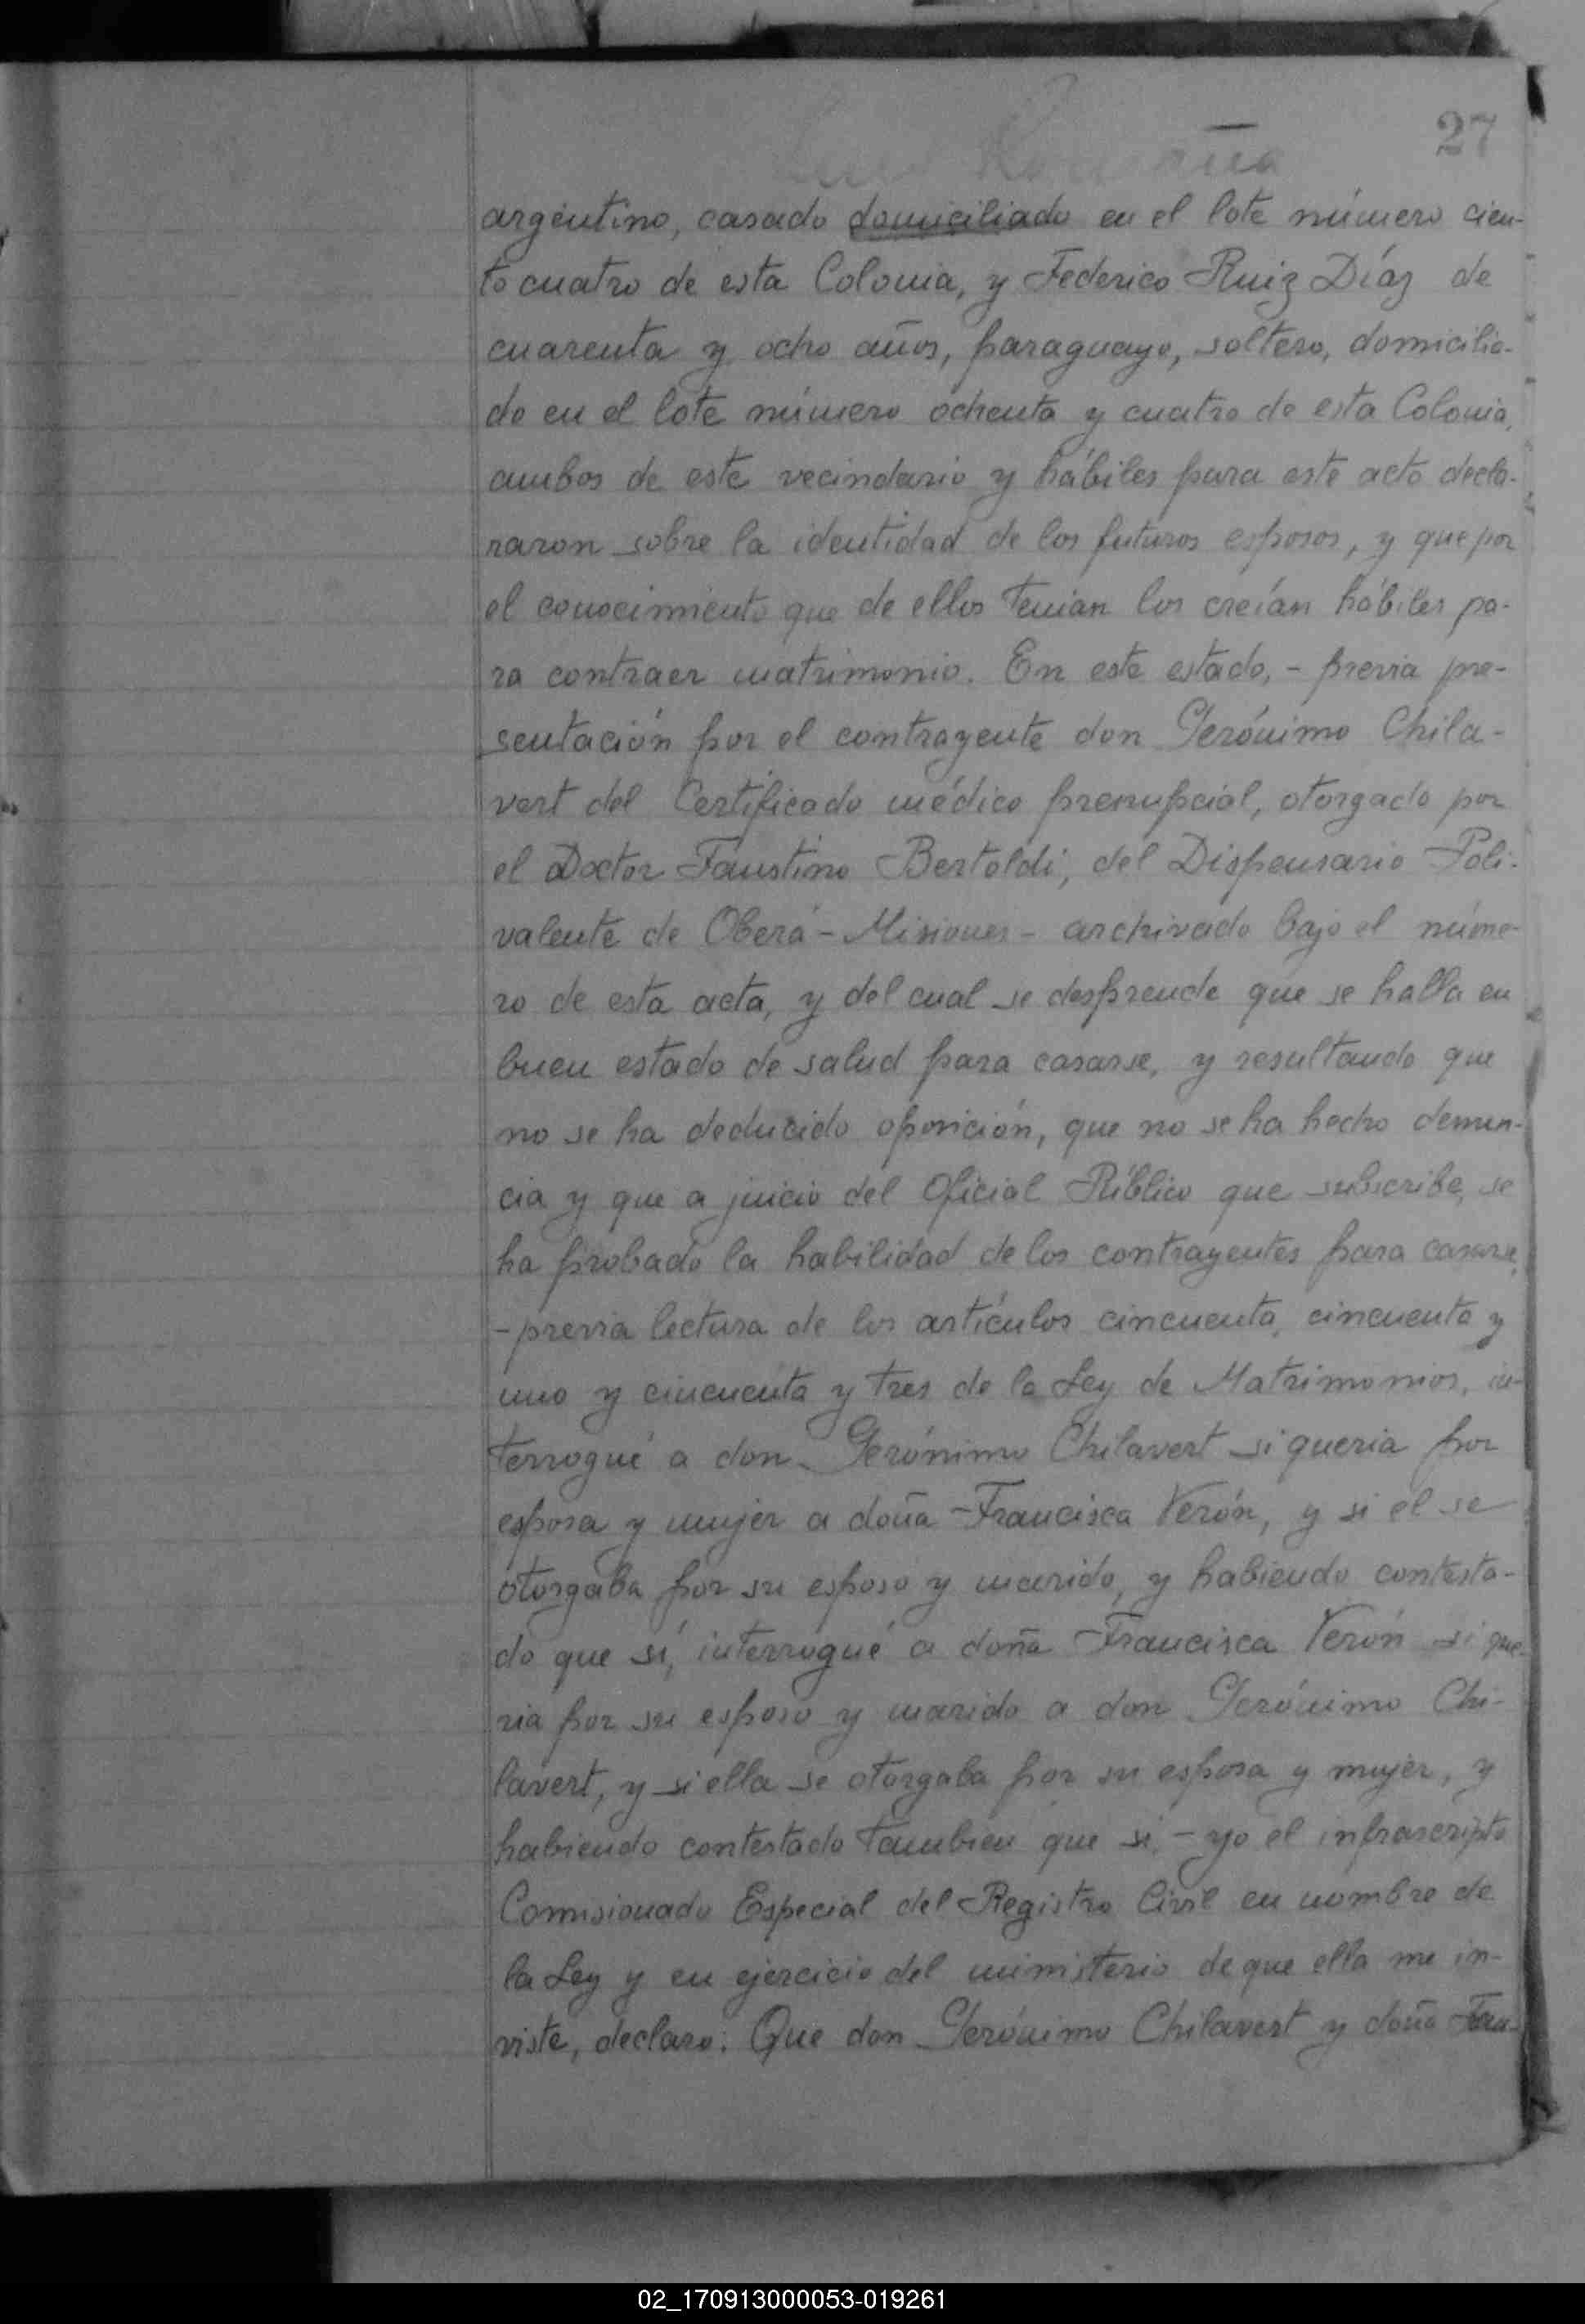 27
argentino, casado domiciliado en el lote número cien-
to cuatro de esta Colonia, y Federico Ruiz Díaz de
cuarenta y ocho años, paraguayo, soltero, domicilia-
do en el lote número ochenta y cuatro de esta Colonia,
ambos de este vecindario y hábiles para este acto decla-
raron sobre la identidad de los futuros esposos, y que por
el conocimiento que de ellos tenian los creían hábiles pa-
ra contraer matrimonio. En este estado, - previa pre-
sentación por el contrayente don Gerónimo Chila-
vert del Certificado médico prenupcial, otorgado por
el Doctor Faustino Bertoldi, del Dispensario Poli-
valente de Oberá - Misiones - archivado bajo el núme-
ro de esta acta, y del cual se desprende que se halla en
buen estado de salud para casarse, y resultando que
no se ha deducido oposición, que no se ha hecho denun-
cia y que a juicio del Oficial Público que subscribe, se
ha probado la habilidad de los contrayentes para casarse,
- previa lectura de los artículos cincuenta, cincuenta y
uno y cincuenta y tres de la Ley de Matrimonios, in-
terrogué a don Gerónimo Chilavert si queria por
esposa y mujer a doña Francisca Verón, y si el se
otorgaba por su esposo y marido, y habiendo contesta-
do que sí, interrogué a doña Francisca Verón si que-
ria por su esposo y marido a don Gerónimo Chi-
lavert, y si ella se otorgaba por su esposa y mujer, y
habiendo contestado tambien que si, - yo el infrascripto
Comisionado Especial del Registro Civil en nombre de
la Ley y en ejercicio del ministerio de que ella me in-
viste, declaro: Que don Gerónimo Chilavert y doña Fran-
02_170913000053-019261